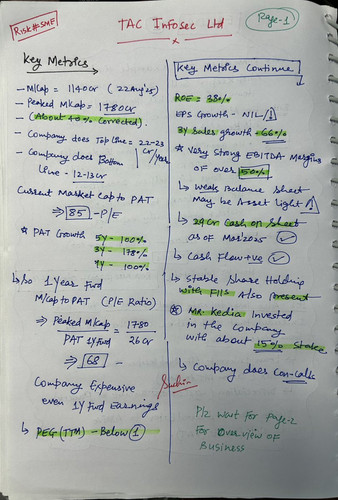 Risk#SME
TAC Infosec Ltd
Page-1
Key Metrics
- MCap = 1140 Cr (22 Aug'25)
- Peaked MCap = 1780 Cr
- (About 40% corrected).
- Company does Top line = 22-23
- Company does Bottom
Line - 12-13 Cr
Cr/year
Current Market Cap to PAT
⇒ 85 - P/E
* PAT Growth 5Y - 100%
3Y - 178%
1Y - 100%
↳ So 1 Year Fwd
M/Cap to PAT (P/E Ratio)
⇒ Peaked M/Cap = 1780
PAT 1Y Fwd 26 Cr
⇒ 68 -
Company Expensive
even 1Y Fwd Earnings
↳ PEG (TTM) - Below 1
Sachin
Key Metrics Continue
ROE = 38%
EPS Growth - NIL/
3Y Sales growth - 66%
* Very strong EBITDA Margins
of over 50%
↳ Weak Balance sheet
May be Asset light
↳ 29 Cr Cash on Sheet
as of Mar'2025 ✓
↳ Cash Flow +ve ✓
↳ Stable Share Holding
with FIIs Also present
* MR. Kedia Invested
in the Company
with about 15% stake
↳ Company does Con-calls
Plz Wait For Page-2
For Overview of
Business